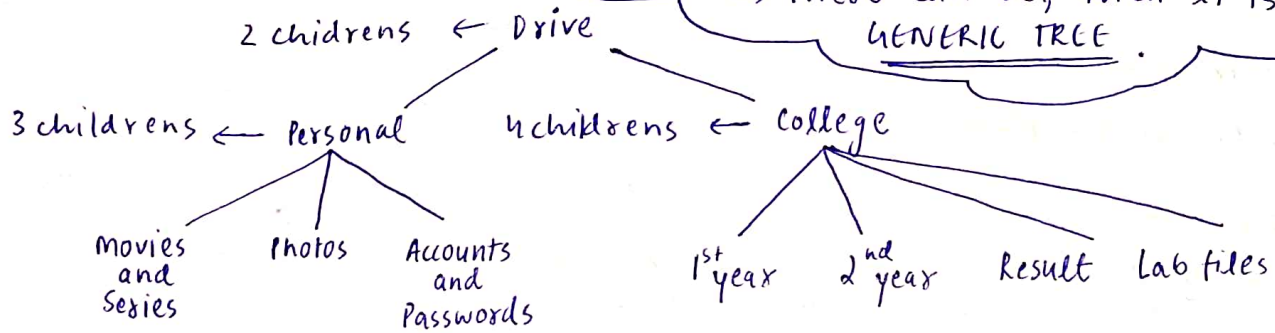 GENERIC TREE.
2 chidrens ← Drive
3 childrens ← Personal 4 childrens ← College
Movies and Series Photos Accounts and Passwords 1st year 2nd year Result Lab files